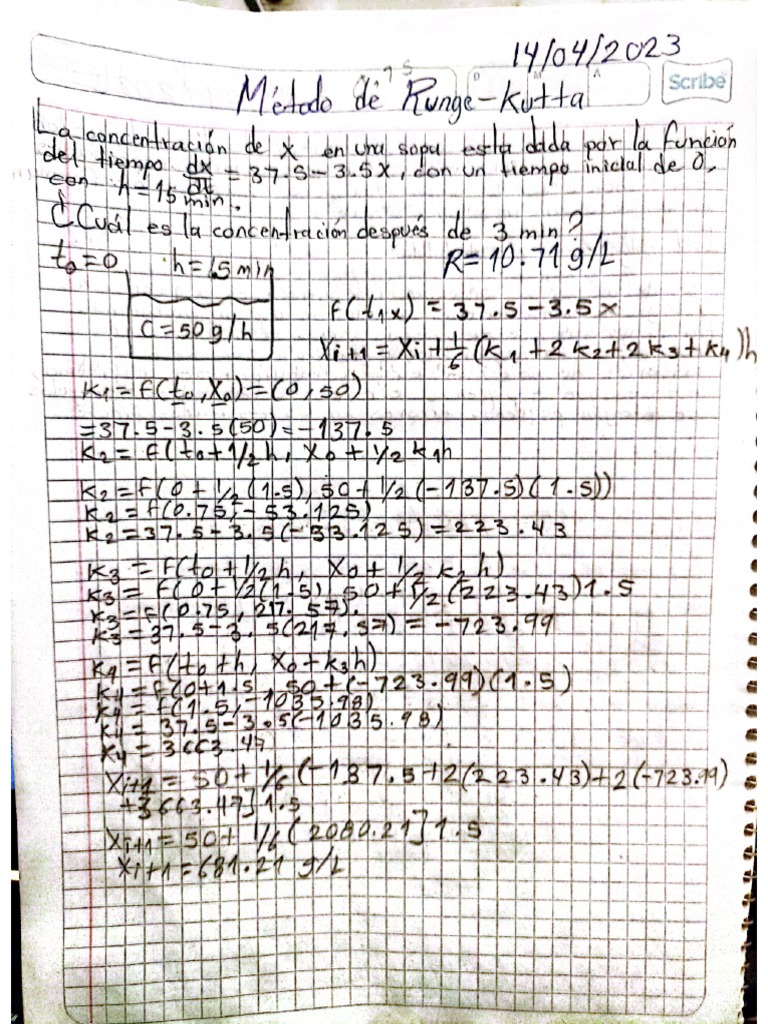 14/04/2023
Scribe
Método de Runge-Kutta
La concentración de x en una sopa esta dada por la función
del tiempo dx/dt = 37.5-3.5x, con un tiempo inicial de 0,
con h=15 min.
¿Cuál es la concentración después de 3 min?
t₀=0 h=1.5 min R=10.71 g/L
f(t,x) = 37.5-3.5x
C=50 g/h
Xi+1 = Xi + 1/6 (k₁+2k₂+2k₃+k₄)h
k₁=f(t₀,X₀)=(0,50)
=37.5-3.5(50)=-137.5
k₂=f(t₀+1/2h, X₀+1/2k₁h
k₂=f(0+1/2(1.5), 50+1/2(-137.5)(1.5))
k₂=f(0.75,-53.125)
k₂=37.5-3.5(-53.125)=223.43
k₃=f(t₀+1/2h, X₀+1/2k₂h)
k₃=f(0+1/2(1.5), 50+1/2(223.43)1.5
k₃=f(0.75, 217.57).
k₃=37.5-3.5(217.57)=-723.99
k₄=f(t₀+h, X₀+k₃h)
k₄=f(0+1.5, 50+(-723.99)(1.5)
k₄=f(1.5,-1035.98)
k₄=37.5-3.5(-1035.98)
k₄=3663.47
Xi+1=50+1/6(-137.5+2(223.43)+2(-723.99)
+3663.47]1.5
Xi+1=50+1/6(2080.21]1.5
Xi+1=681.21 g/L